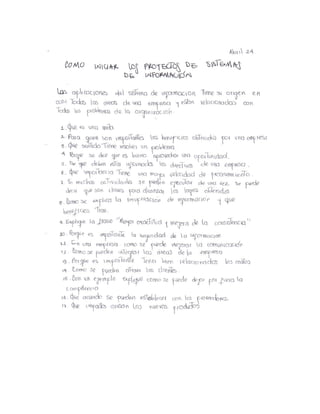 Abril 24
COMO INICIAR LOS PROYECTOS DE SISTEMAS
DE INFORMACIÓN
Las aplicaciones del sistema de informacion Tiene su origen en
casi Todas las areas de una empresa y estan relacionadas con
Todos los problemas de la organización
1. Que es una
2. Para quien son importantes los beneficios obtenidos por una empresa
3. Que sentido Tiene resolver un problema
4. Porque se dice que es bueno aprovechar una oportunidad
5. De que deben estar informados los directivos de una empresa
6. Que importancia Tiene una mayor velocidad de procesamiento
7. Si muchas actividades se pueden ejecutar de una vez, se puede
decir que son claves para alcanzar los logros obtenidos
8. Como se explica la recuperación de información y que
beneficios Trae
9. Explique la frase "Mayor exactitud y mejora de la consistencia"
10. Porque es importante la seguridad de la informacion
11. En una empresa como se puede mejorar la comunicación
12. Como se pueden integrar las areas de la empresa
13. Porque es importante Tener bien relacionados los costos
14. Como se pueden atraer los clientes
15. Con un ejemplo explique como se puede dejar por fuera la
competencia
16. Que acuerdo se pueden establecer con los proveedores
17. Que impacto crean los nuevos productos